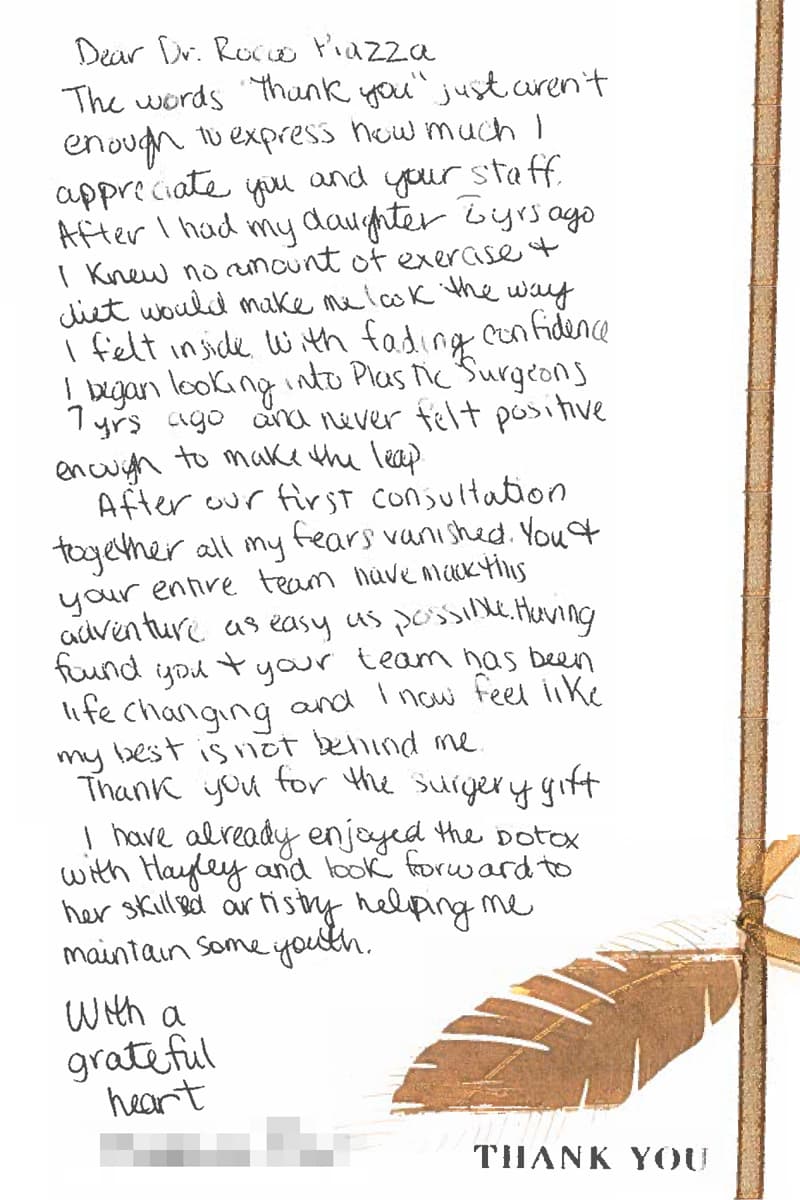 Dear Dr. Rocco Piazza
The words "Thank you" just aren't
enough to express how much I
appreciate you and your staff.
After I had my daughter yrs ago
I knew no amount of exercise +
diet would make me look the way
I felt inside. With fading confidence
I began looking into Plastic Surgeons
7 yrs ago and never felt positive
enough to make the leap
After our first consultation
together all my fears vanished. You +
your entire team have made this
adventure as easy as possible. Having
found you + your team has been
life changing and I now feel like
my best is not behind me
Thank you for the surgery gift
I have already enjoyed the botox
with Hayley and look forward to
her skilled artistry helping me
maintain some youth.
With a
grateful
heart
THANK YOU